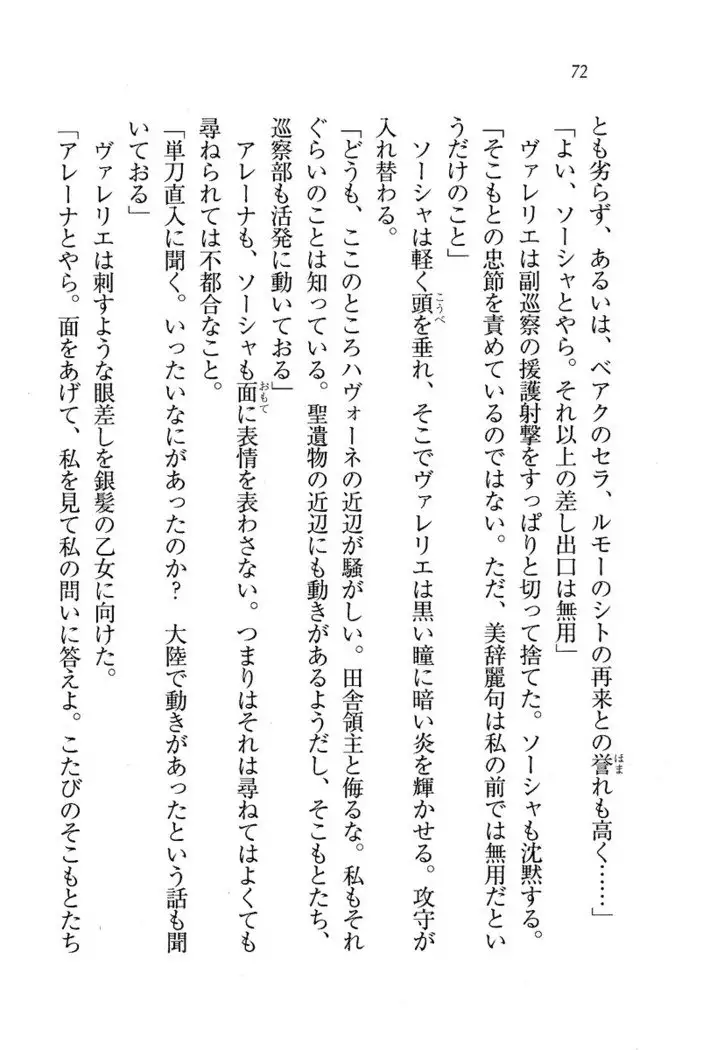 72
とも劣らず、あるいは、ベアクのセラ、ルモーのシトの再来との誉れも高く……」
「よい、ソーシャとやら。それ以上の差し出口は無用」
ヴァレリエは副巡察の援護射撃をすっぱりと切って捨てた。ソーシャも沈黙する。
「そこもとの忠節を責めているのではない。ただ、美辞麗句は私の前では無用だとい
うだけのこと」
ソーシャは軽く頭を垂れ、そこでヴァレリエは黒い瞳に暗い炎を輝かせる。攻守が
入れ替わる。
「どうも、ここのところハヴォーネの近辺が騒がしい。田舎領主と侮るな。私もそれ
ぐらいのことは知っている。聖遺物の近辺にも動きがあるようだし、そこもとたち、
巡察部も活発に動いておる」
アレーナも、ソーシャも面に表情を表わさない。つまりはそれは尋ねてはよくても
尋ねられては不都合なこと。
「単刀直入に聞く。いったいなにがあったのか?　大陸で動きがあったという話も聞
いておる」
ヴァレリエは刺すような眼差しを銀髪の乙女に向けた。
「アレーナとやら。面をあげて、私を見て私の問いに答えよ。こたびのそこもとたち